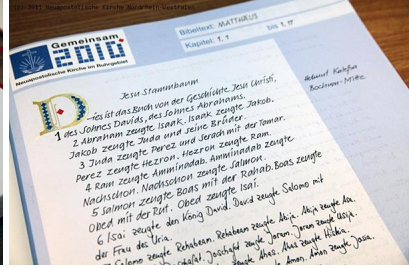 2011 Neuapostolische Kirche Nordrhein-Westfalen
Gemeinsam
2010
Neuapostolische Kirche im Ruhrgebiet
Bibeltext: MATTHÄUS
Kapitel: 1,1 bis 1,17
Jesu Stammbaum
Dies ist das Buch von der Geschichte Jesu Christi,
1 des Sohnes Davids, des Sohnes Abrahams.
2 Abraham zeugte Isaak. Isaak zeugte Jakob.
Jakob zeugte Juda und seine Brüder.
3 Juda zeugte Perez und Serach mit der Tamar.
Perez zeugte Hezron. Hezron zeugte Ram.
4 Ram zeugte Amminadab. Amminadab zeugte
Nachschon. Nachschon zeugte Salmon.
5 Salmon zeugte Boas mit der Rahab. Boas zeugte
Obed mit der Rut. Obed zeugte Isai.
6 Isai zeugte den König David. David zeugte Salomo mit
der Frau des Uria.
Salomo zeugte Rehabeam. Rehabeam zeugte Abija. Abija zeugte Asa.
Joschafat zeugte Joram. Joram zeugte Usija.
zeugte Ahas. Ahas zeugte Hiskia.
Amon. Amon zeugte Josia.
Bochum-Mitte